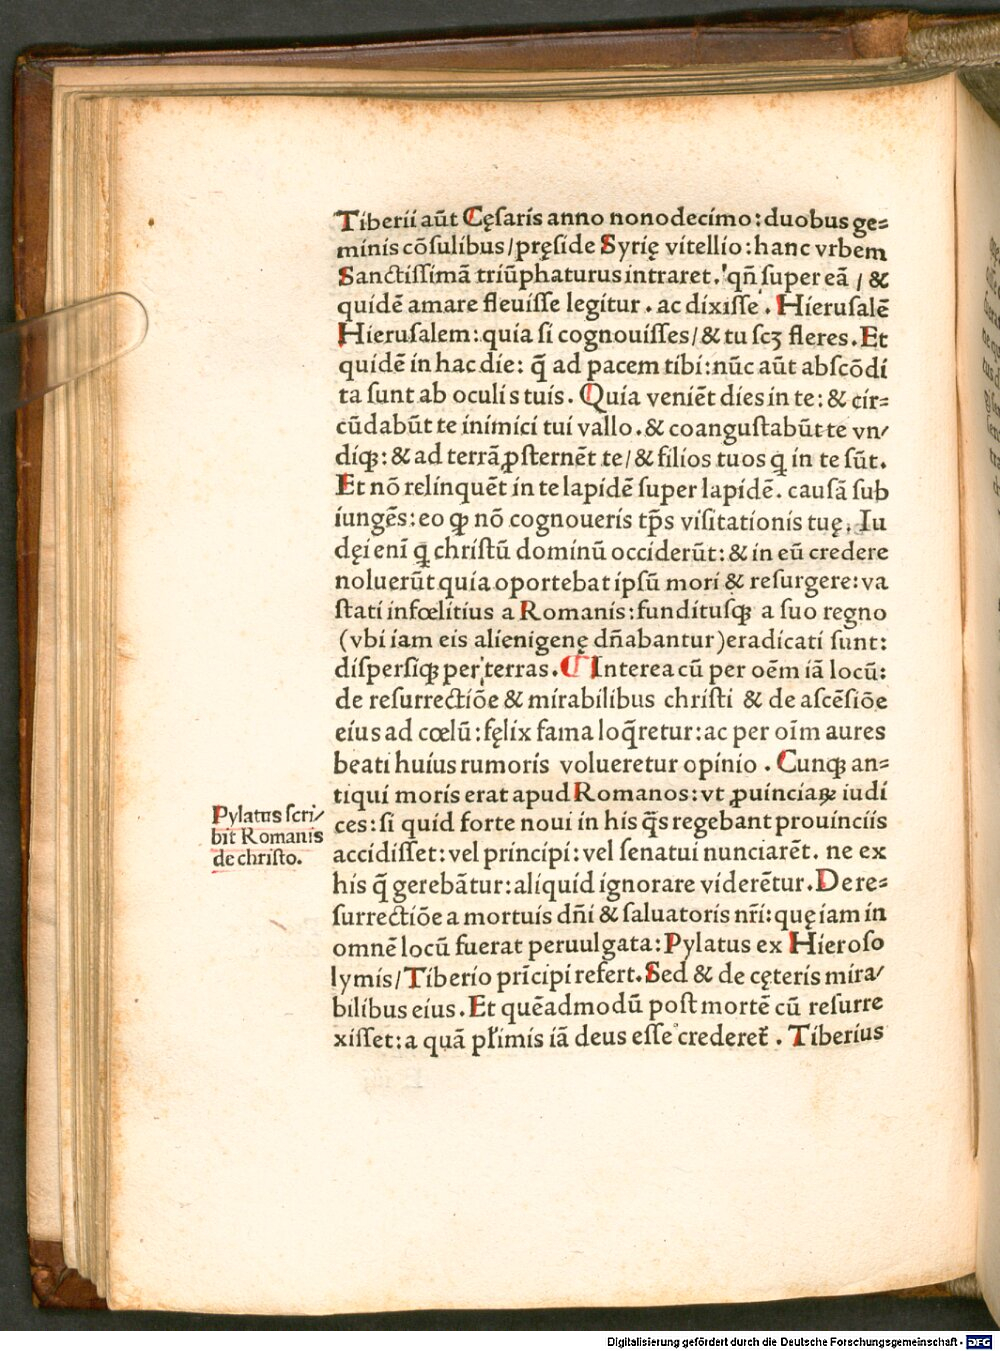 Tiberii aūt Cęſaris anno nonodecimo: duobus ge⸗
minis cōſulibus/pręſide Syrię vitellio: hanc vrbem
Sanctiſſimā triūphaturus intraret. qñ ſuper eā / &
quidē amare fleuiſſe legitur . ac dixiſſe . Hieruſalē
Hieruſalem: quia ſi cognouiſſes/& tu ſcꝫ fleres. Et
quidē in hac die: q̄ ad pacem tibi: nūc aūt abſcōdi
ta ſunt ab oculis tuis. Quia veniēt dies in te: & cir⸗
cūdabūt te inimici tui vallo. & coanguſtabūt te vn/
diqꝫ: & ad terrā ꝓſternēt te/& filios tuos q̄ in te ſūt.
Et nō relinquēt in te lapidē ſuper lapidē. cauſā ſub
iungēs: eo ꝙ nō cognoueris tp̄s viſitationis tuę. Iu
dęi enī q̄ chriſtū dominū occiderūt: & in eū credere
noluerūt quia oportebat ipſū mori & reſurgere: va
ſtati infœlitius a Romanis: funditusqꝫ a ſuo regno
(vbi iam eis alienigenę dn̄abantur) eradicati ſunt:
diſperſiqꝫ per terras. ¶ Interea cū per oēm iā locū:
de reſurrectiōe & mirabilibus chriſti & de aſcēſiōe
eius ad cœlū: fęlix fama loq̄retur: ac per oīm aures
beati huius rumoris volueretur opinio . Cunqꝫ an⸗
tiqui moris erat apud Romanos: vt ꝓuinciaꝝ iudi
ces: ſi quid forte noui in his q̄s regebant prouinciis
accidiſſet: vel principi: vel ſenatui nunciarēt. ne ex
his q̄ gerebātur: aliquid ignorare viderētur. De re⸗
ſurrectiōe a mortuis dn̄i & ſaluatoris nr̄i: quę iam in
omnē locū fuerat peruulgata: Pylatus ex Hieroſo
lymis/Tiberio prīcipi refert. Sed & de cęteris mira/
bilibus eius. Et quēadmodū poſt mortē cū reſurre
xiſſet: a quā pl̄imis iā deus eſſe crederet̄ . Tiberius
Pylatus ſcri/
bit Romanis
de chriſto.
Digitalisierung gefördert durch die Deutsche Forschungsgemeinschaft - DFG